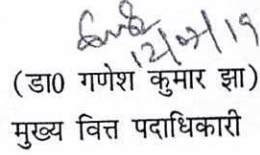 12/07/19
(डा0 गणेश कुमार झा)
मुख्य वित्त पदाधिकारी